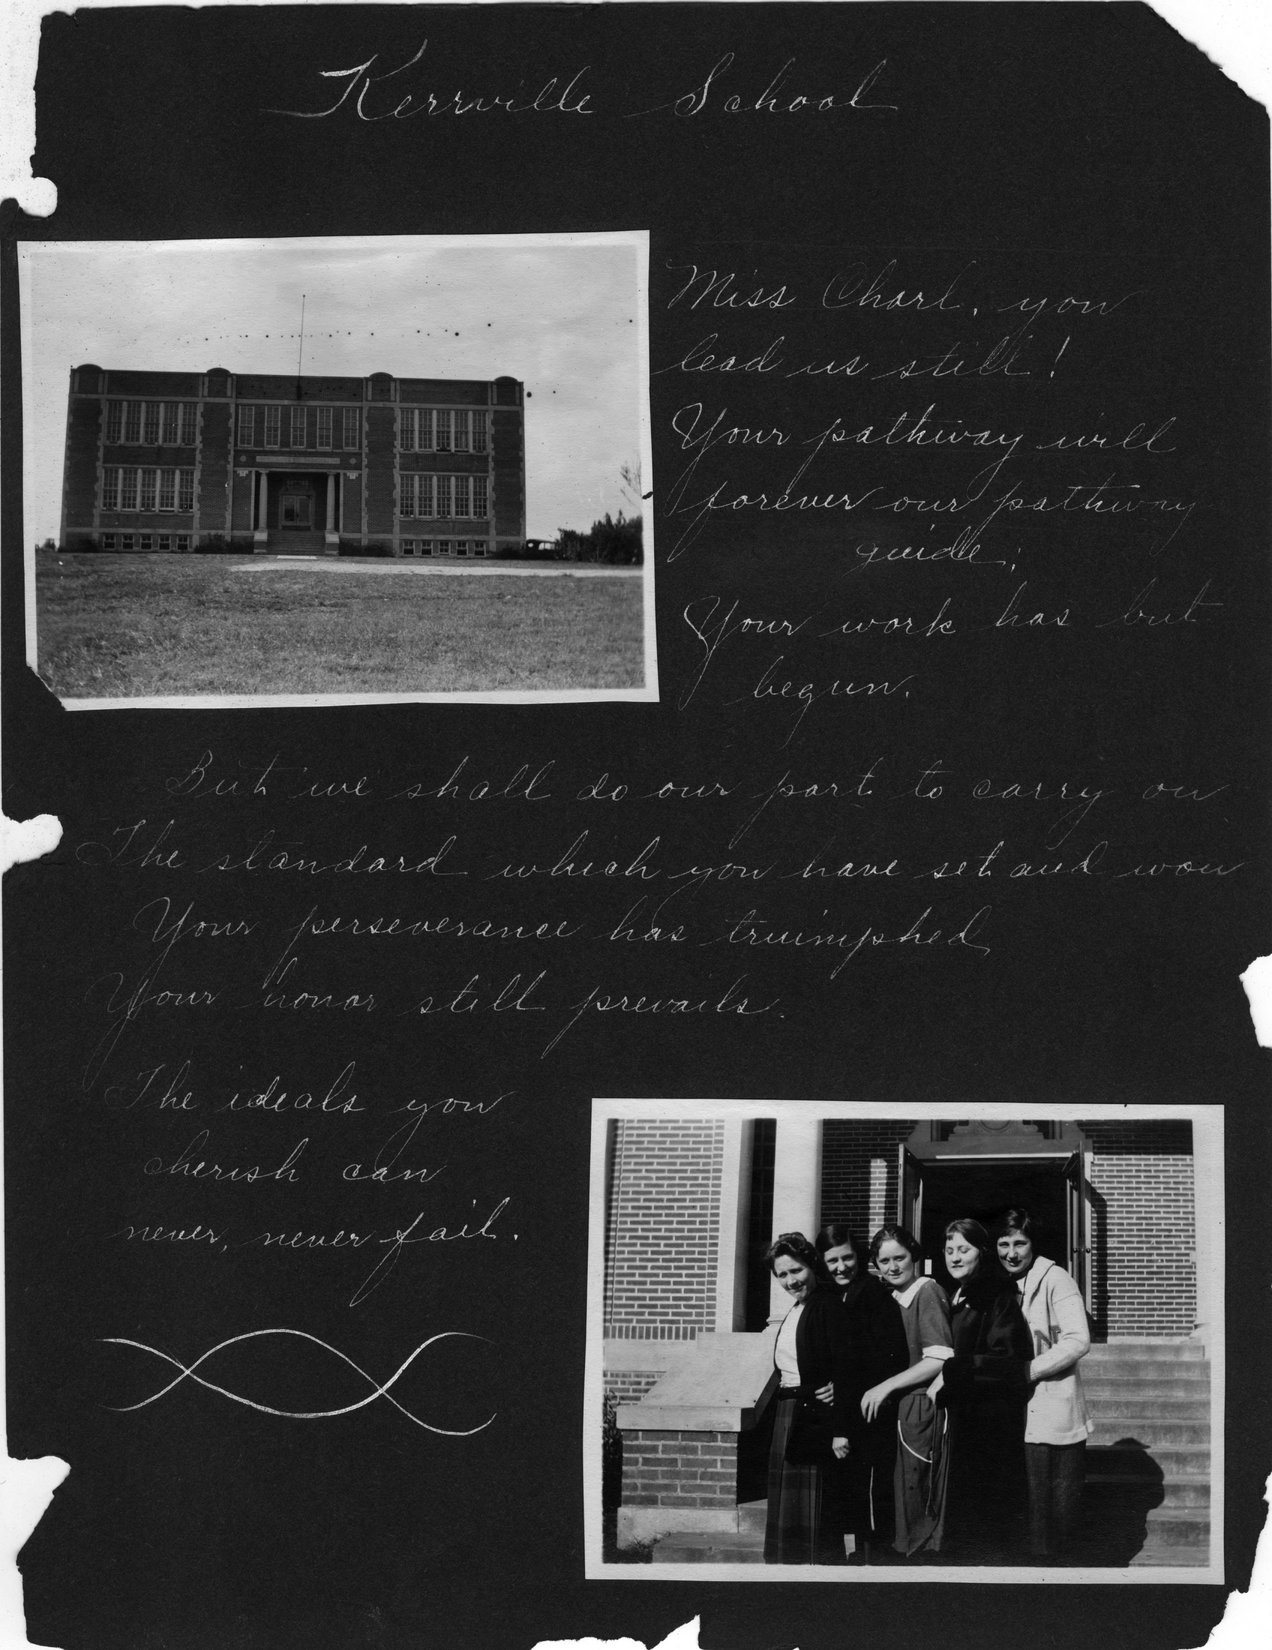 Kerrville School
Miss Charl, you
lead us still!
Your pathway will
forever our pathway
guide;
Your work has but
begun.
But we shall do our part to carry on
The standard which you have set and won
Your perseverance has truimphed
Your honor still prevails.
The ideals you
cherish can
never, never fail.
N